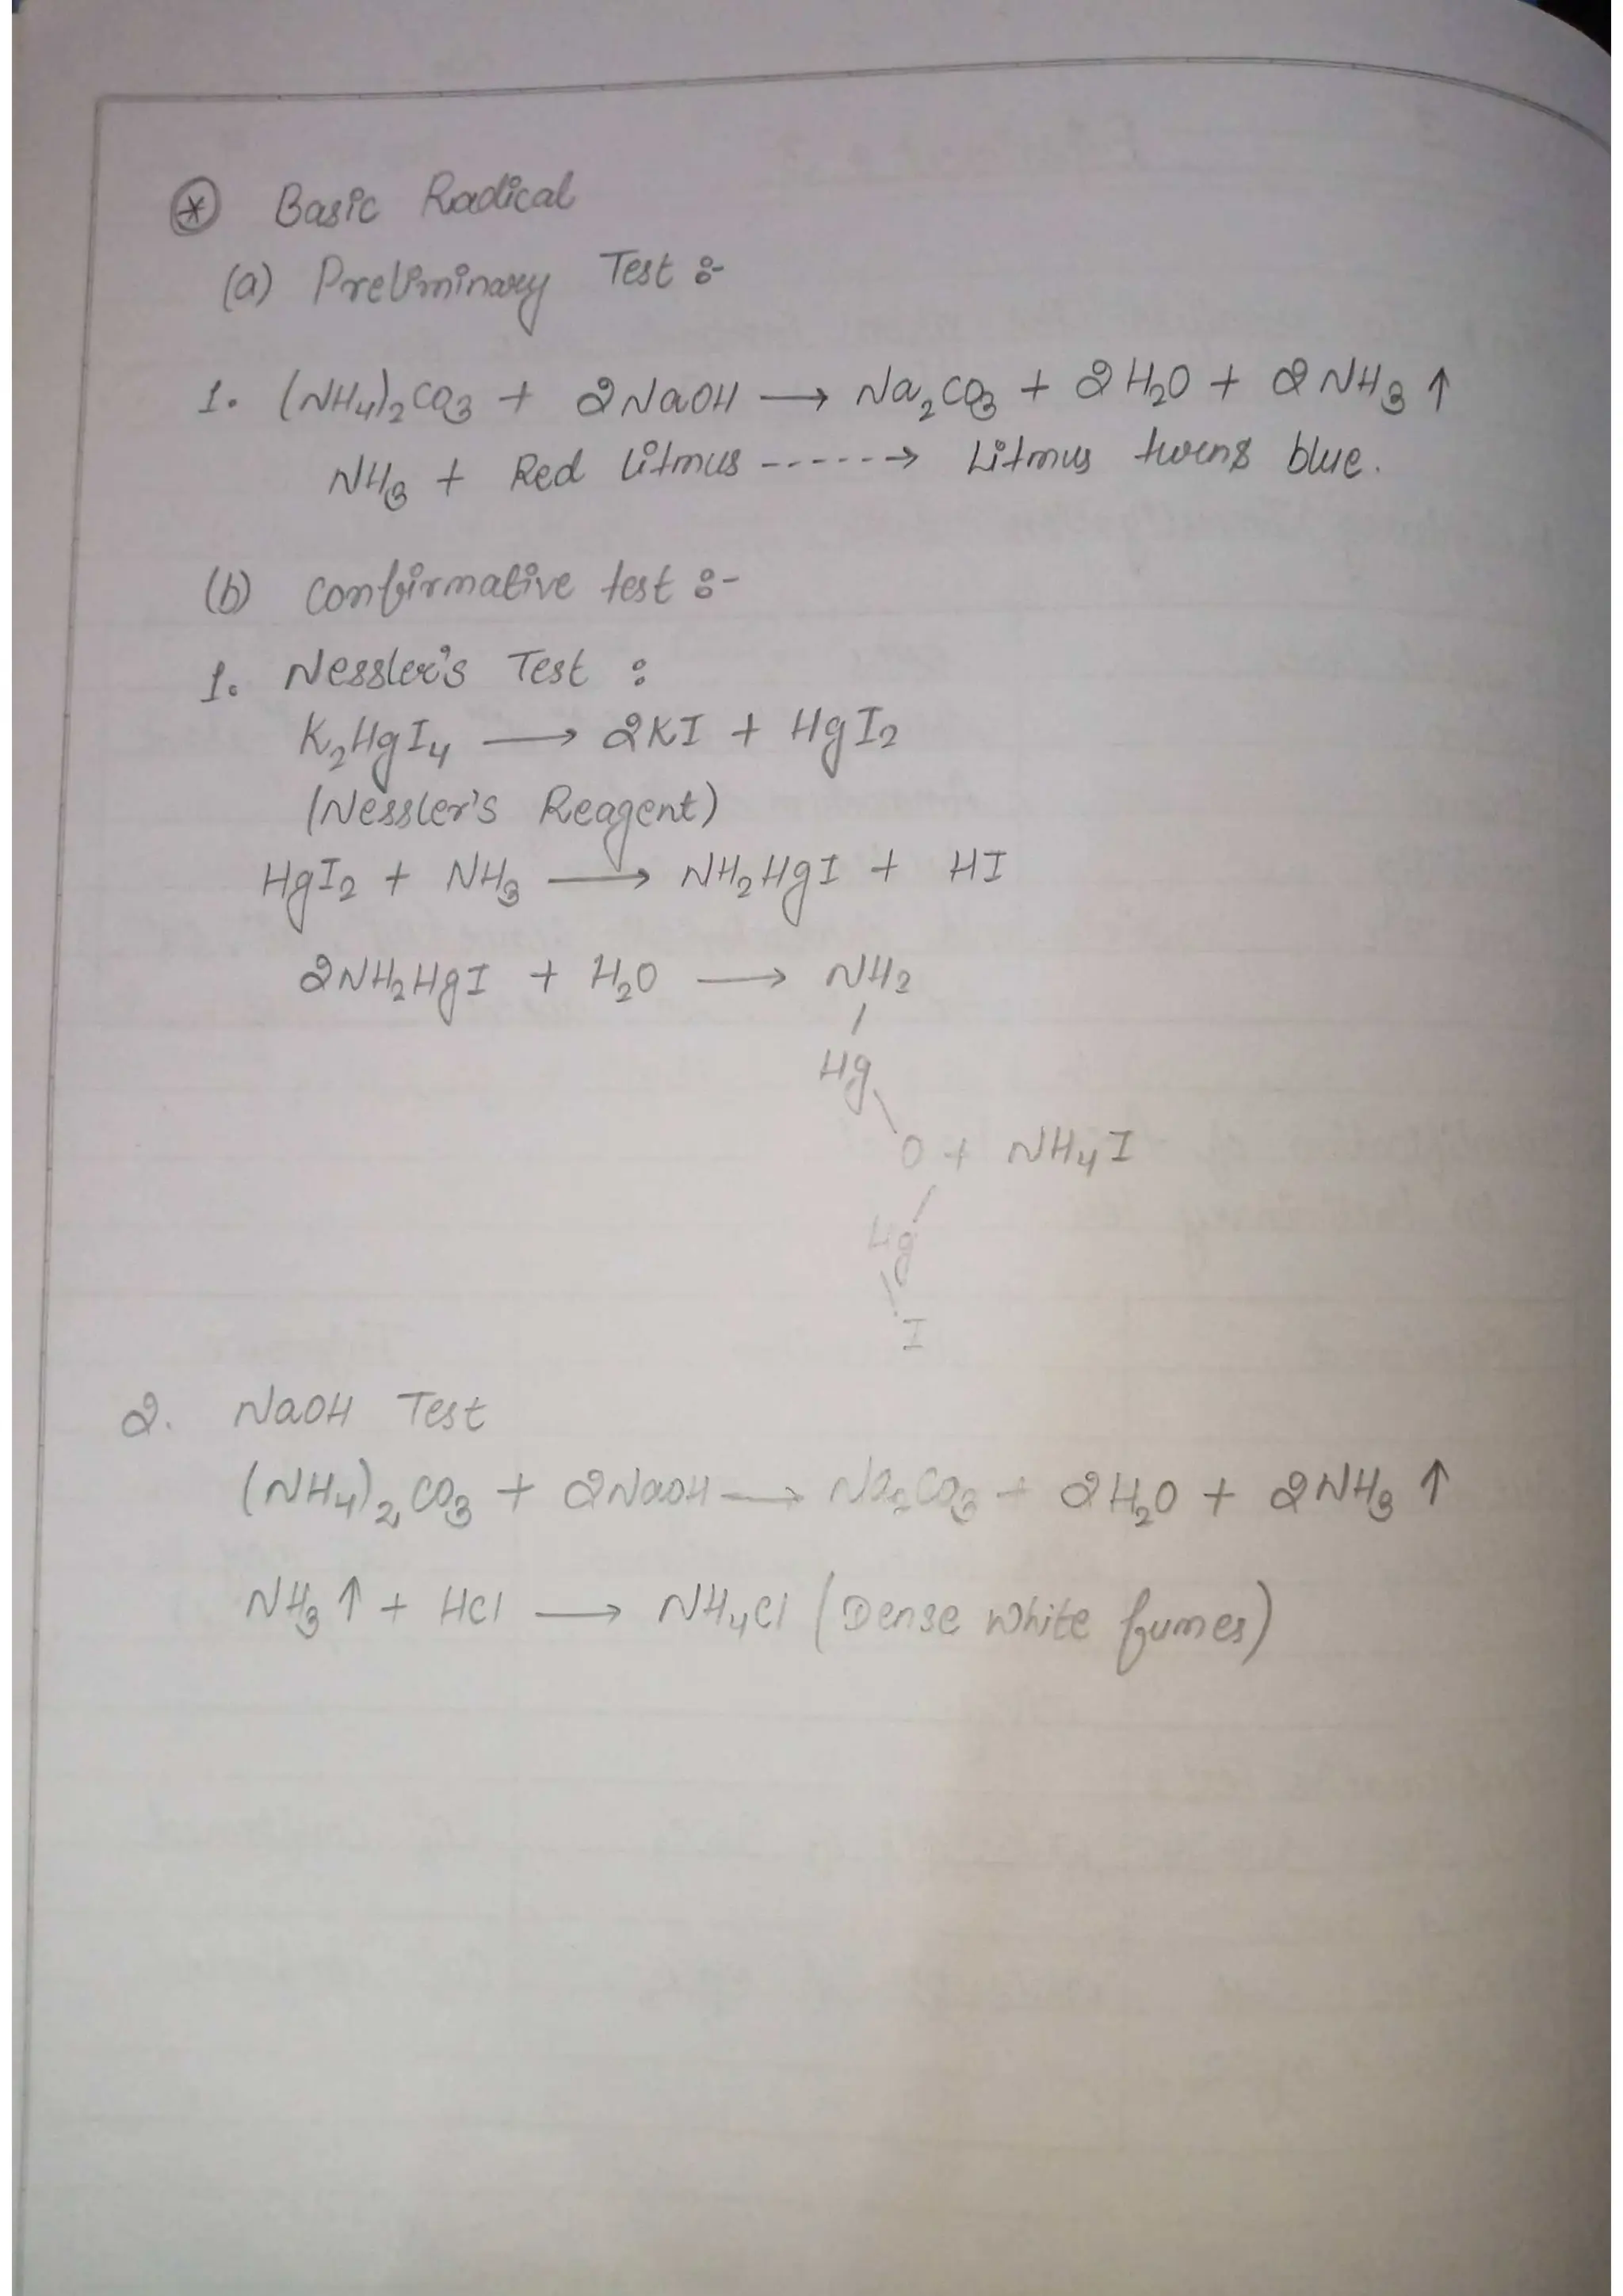 ⊛ Basic Radical
(a) Preliminary Test :-
1. (NH₄)₂CO₃ + 2NaOH ⟶ Na₂CO₃ + 2H₂O + 2NH₃ ↑
NH₃ + Red litmus ------> Litmus turns blue.
(b) Confirmative test :-
1. Nessler's Test :
K₂HgI₄ ⟶ 2KI + HgI₂
(Nessler's Reagent)
HgI₂ + NH₃ ⟶ NH₂HgI + HI
2NH₂HgI + H₂O ⟶ NH₂
Hg
O + NH₄I
Hg
I
2. NaOH Test
(NH₄)₂CO₃ + 2NaOH ⟶ Na₂CO₃ + 2H₂O + 2NH₃ ↑
NH₃ ↑ + HCl ⟶ NH₄Cl (Dense white fumes)